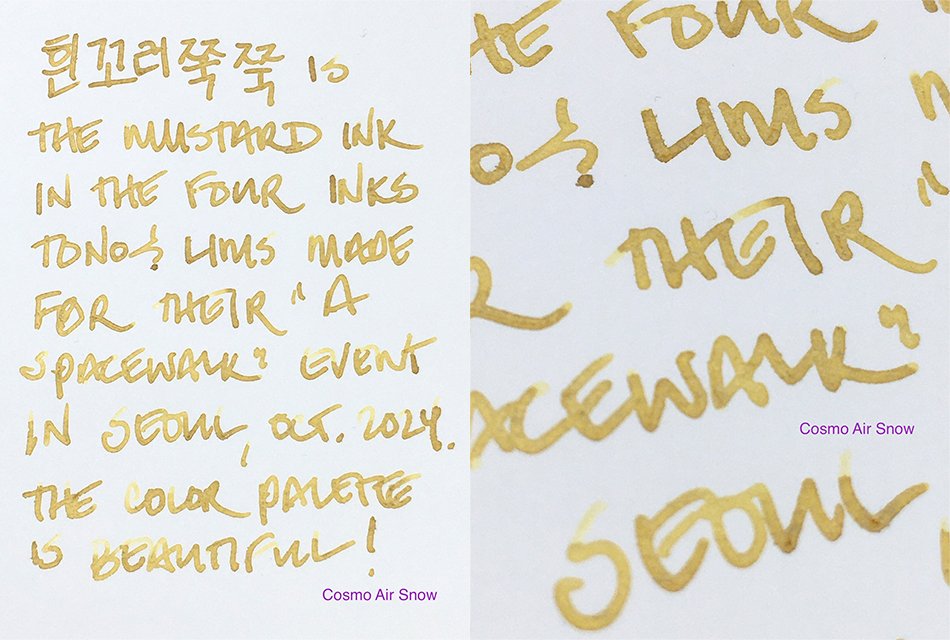 흰꼬리쭉쭉 IS
THE MUSTARD INK
IN THE FOUR INKS
TONO& LIMS MADE
FOR THEIR "A
SPACEWALK" EVENT
IN SEOUL, OCT. 2024.
THE COLOR PALETTE
IS BEAUTIFUL!
Cosmo Air Snow
HE FOUR
NO& LIMS
R THEIR "
ACEWALK"
Cosmo Air Snow
SEOUL